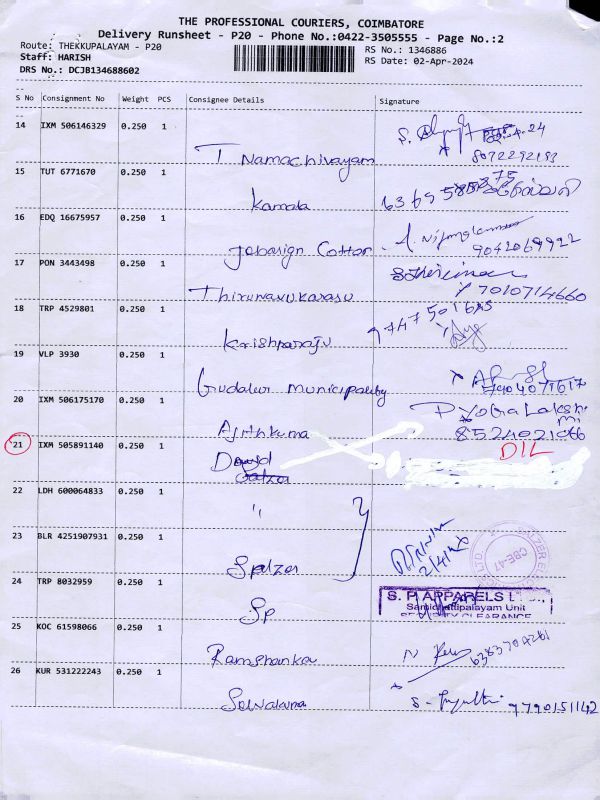 THE PROFESSIONAL COURIERS, COIMBATORE
Delivery Runsheet - P20 - Phone No.:0422-3505555 - Page No.:2
Route: THEKKUPALAYAM - P20
RS No.: 1346886
Staff: HARISH
RS Date: 02-Apr-2024
DRS No.: DCJB134688602
S No Consignment No Weight PCS Consignee Details Signature
14 IXM 506146329 0.250 1
T Namachivayam
8072292193
15 TUT 6771670 0.250 1
Kamala
16 EDQ 16675957 0.250 1
Jobarign Cottor
9042069922
17 PON 3443498 0.250 1
Thirunavukarasu
7010714660
18 TRP 4529801 0.250 1
Krishnaraju
19 VLP 3930 0.250 1
Gudalur Municipality
20 IXM 506175170 0.250 1
Ajithkuma
8524021066
21 IXM 505891140 0.250 1
David
DIL
22 LDH 600064833 0.250 1
"
23 BLR 4251907931 0.250 1
Salzer
24 TRP 8032959 0.250 1
SP
S. P. APPARELS LTD.,
Samichettipalayam Unit
SECURITY CLEARANCE
25 KOC 61598066 0.250 1
Ramshanka
6383704261
26 KUR 531222243 0.250 1
Selvakuma
9790151142